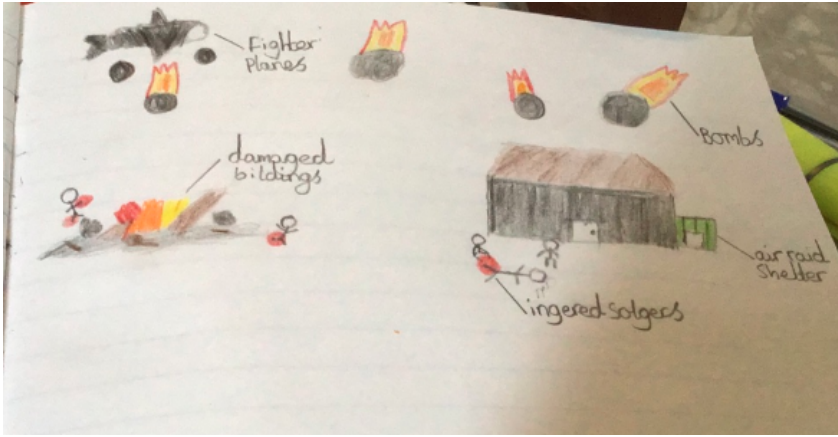 Fighter
Planes
Bombs
damaged
bildings
air raid
shelter
ingered solgers